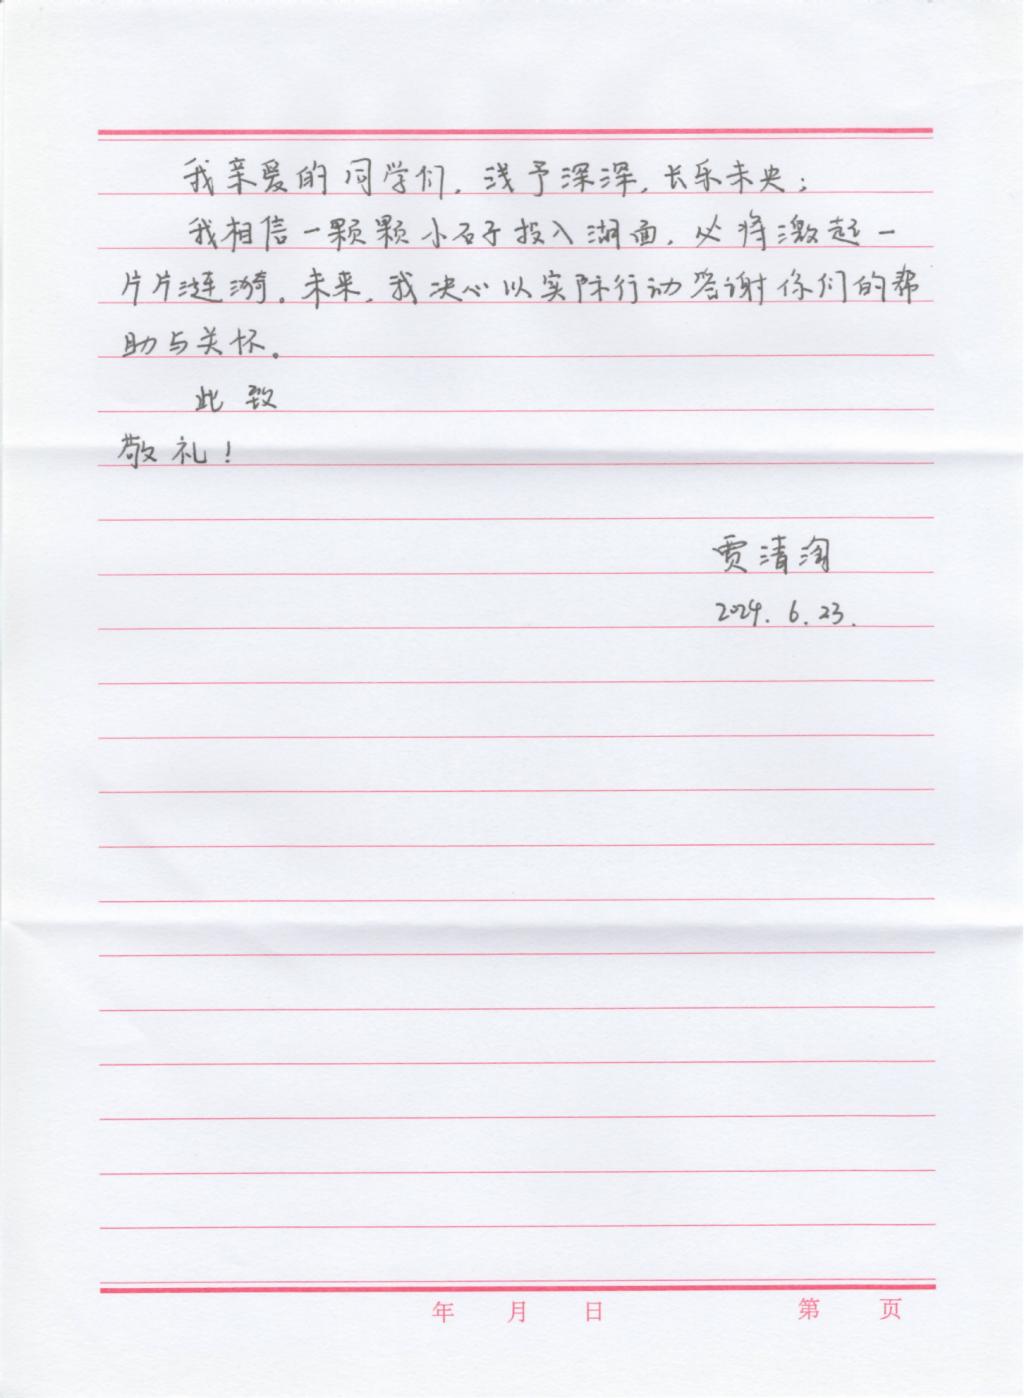 我亲爱的同学们，浅予深深，长乐未央；
我相信一颗颗小石子投入湖面，必将激起一
片片涟漪。未来，我决心以实际行动答谢你们的帮
助与关怀。
此致
敬礼！
贾清淘
2024.6.23.
年 月 日 第 页